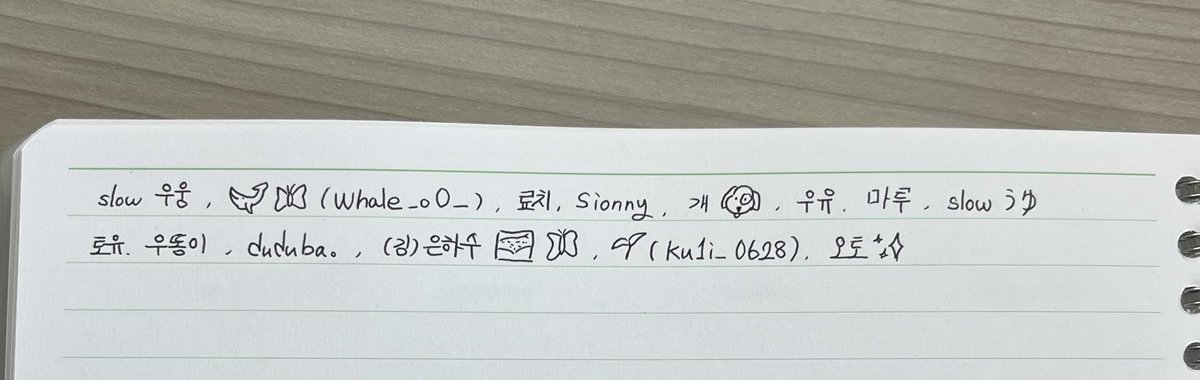 slow 우웅, (Whale_o0_), 료치, Sionny, 개, 우유, 마루, slow うゆ
토유, 우똥이, duduba。, (김)은하수, (ku1i_0628), 오토